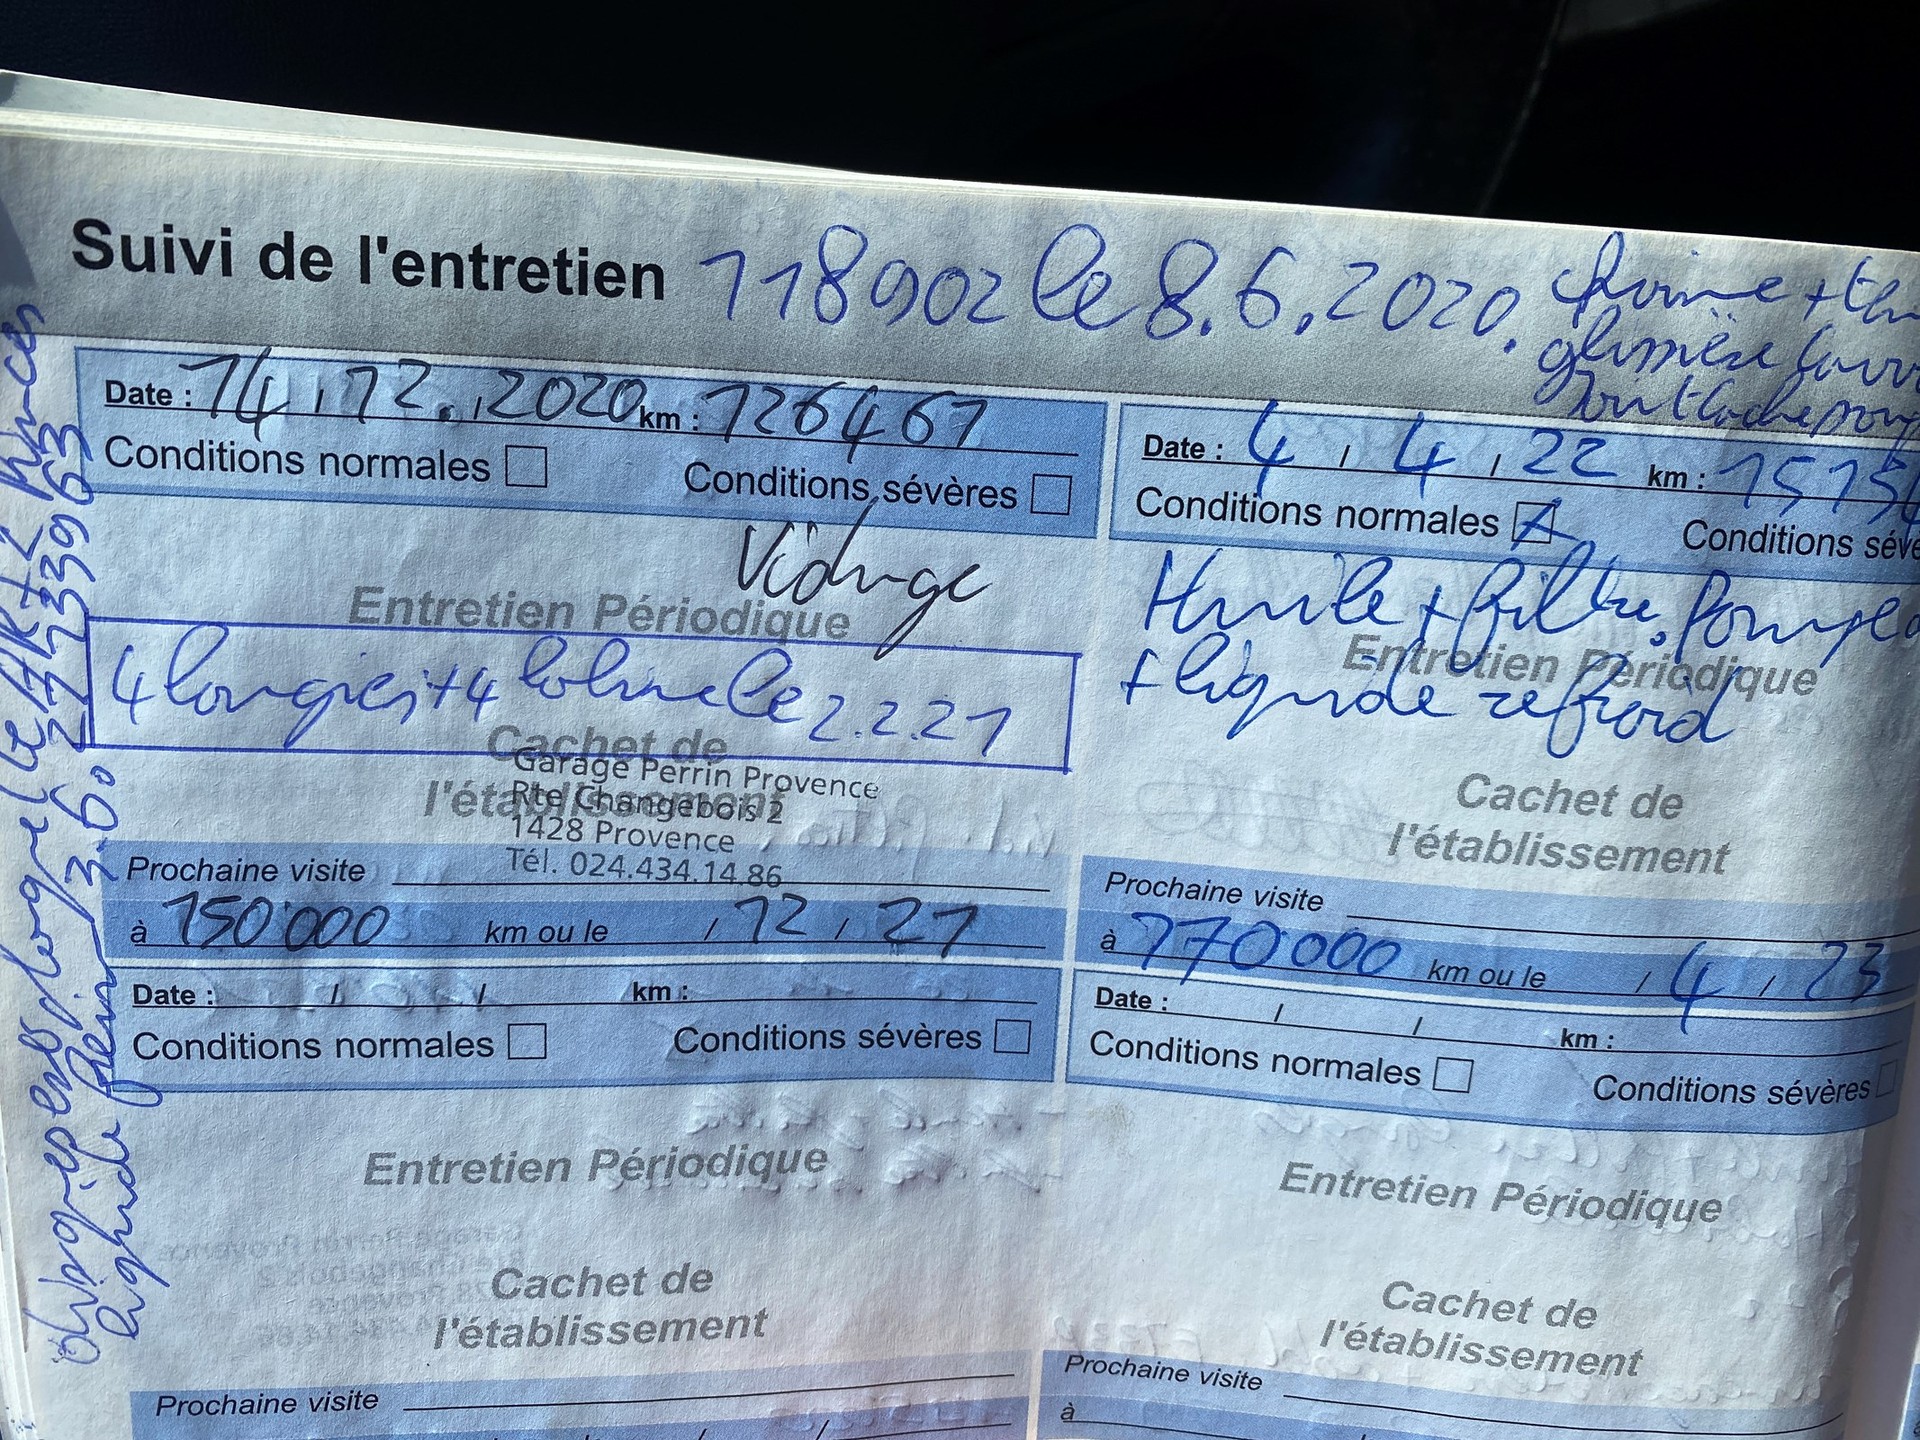 Suivi de l'entretien 118902 le 8.6.2020.
glissière
Date : 14 / 12 . / 2020 km : 126467
Conditions normales Conditions sévères
Vidange
Entretien Périodique
4 bougies + 4 bobine le 2.2.21
Cachet de
l'établissement
Garage Perrin Provence
Rte Changebois 2
1428 Provence
Tél. 024.434.14.86
Prochaine visite
à 150'000 km ou le / 12 / 21
Date : / / km :
Conditions normales Conditions sévères
Entretien Périodique
Cachet de
l'établissement
Prochaine visite
Date : 4 / 4 / 22 km :
Conditions normales Conditions
Huile + filtre. Pompe
+ liquide refroid
Entretien Périodique
Cachet de
l'établissement
Prochaine visite
à 170'000 km ou le / 4 / 23
Date : / / km :
Conditions normales Conditions sévères
Entretien Périodique
Cachet de
l'établissement
Prochaine visite
à
liquide frein 3.6.